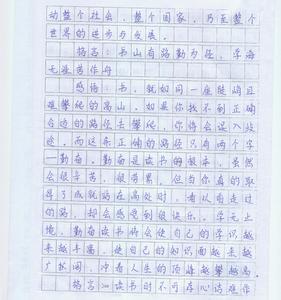 动整个社会，整个国家，乃至整个
世界的进步与发展。
格言：书山有路勤为径，学海
无涯苦作舟
感悟：书，就如同一座陡峭且
难攀爬的高山，如果你找不到正确
合适的路径去攀爬，你将会误入歧
途。而这条正确的路径只有两个字
—勤奋。勤奋是读书的根本，虽然
会很辛苦，很劳累，但当你真的取
得了成就站在高处时，看以有走过
的路，却会感觉到很快乐。学无止
境，勤奋读书将会使自己的学识越
来越丰富，使自己的知识面越来越
广扩阔，冲着人生的顶峰越攀越高。
格言：读书时不可存心诘难作